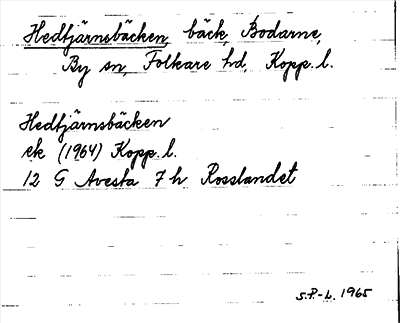 Hedtjärnsbäcken, bäck, Bodarne,
By sn, Folkare hd, Kopp. l.
Hedtjärnsbäcken
ek (1964) Kopp. l.
12 G Avesta 7 h Rosslandet
S.P-L. 1965